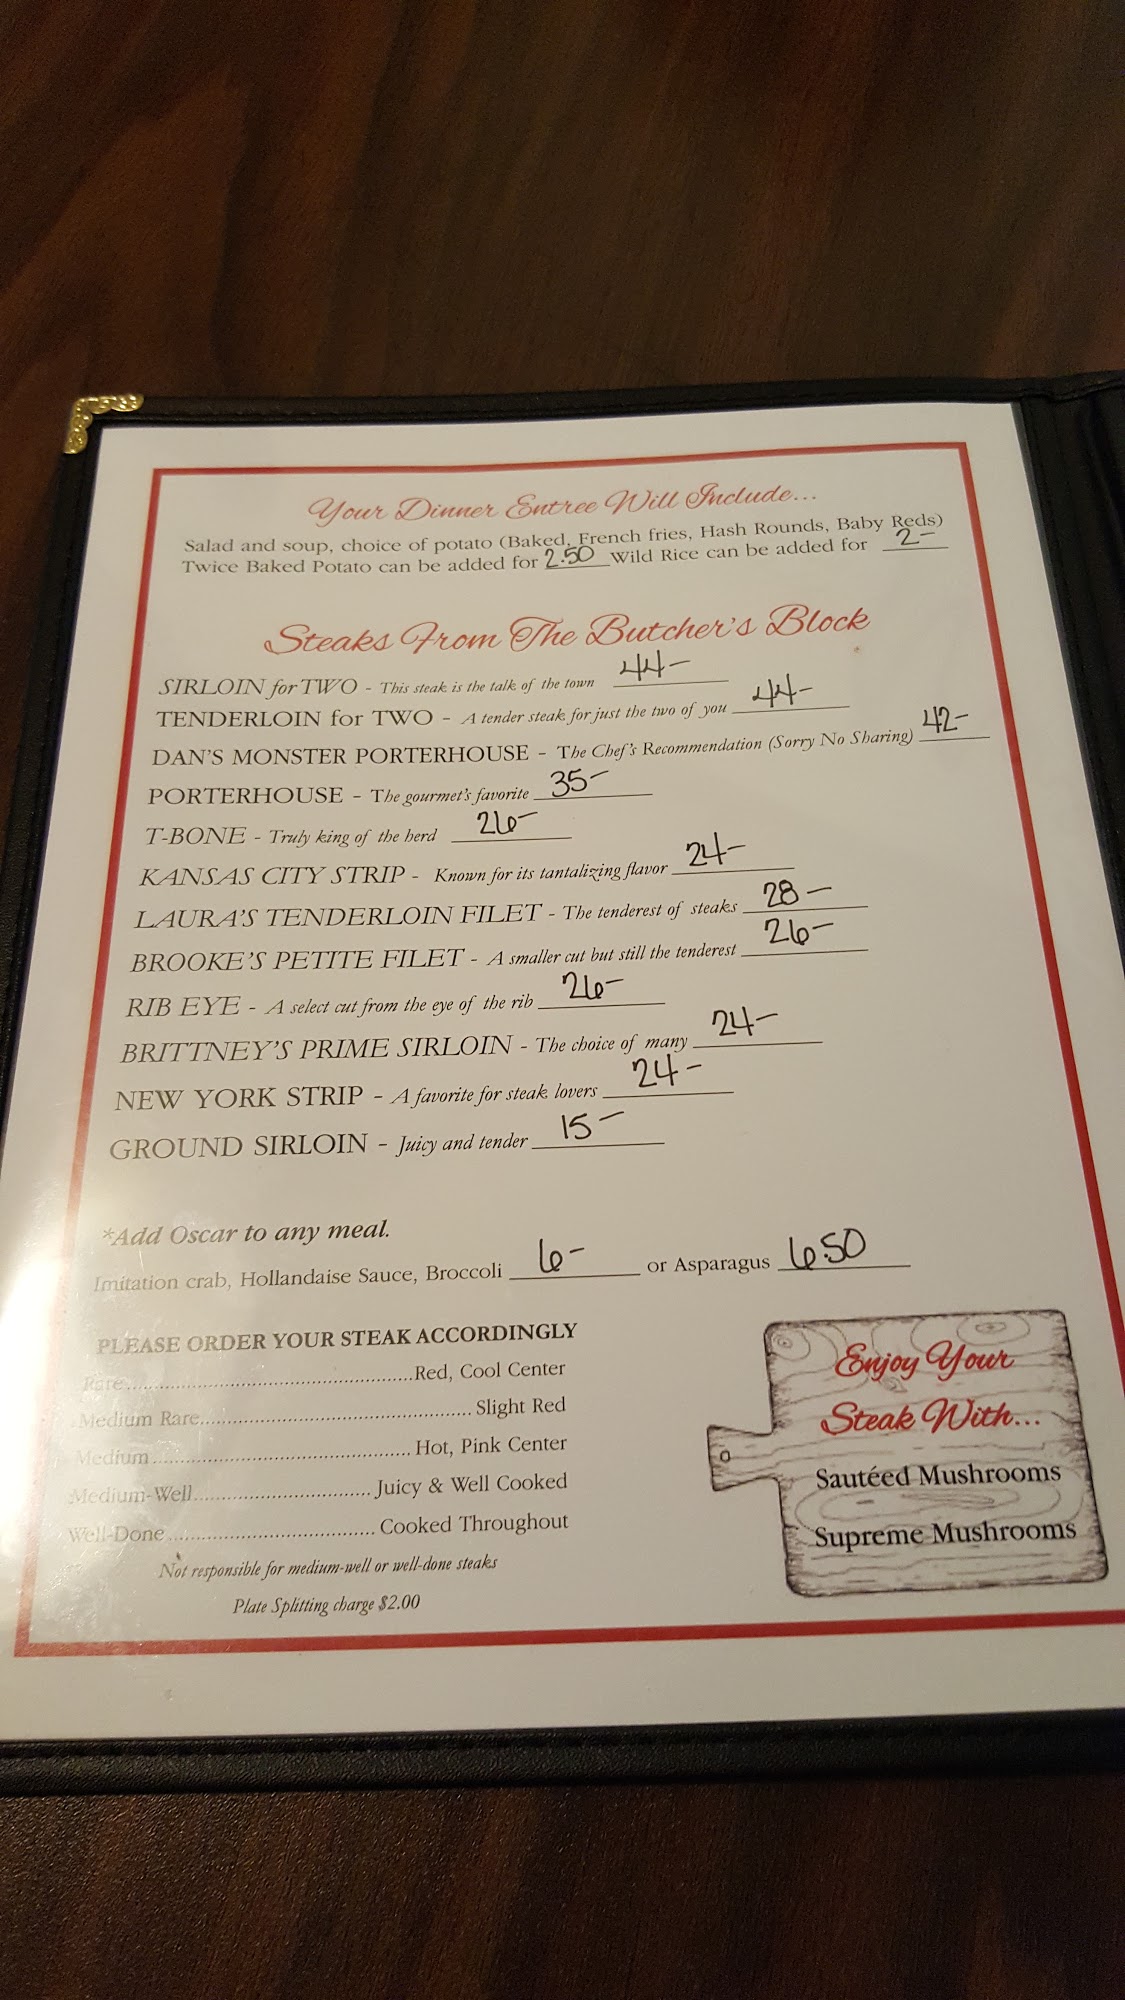 Your Dinner Entree Will Include...
Salad and soup, choice of potato (Baked, French fries, Hash Rounds, Baby Reds)
Twice Baked Potato can be added for 2.50 Wild Rice can be added for 2-
Steaks From The Butcher's Block
SIRLOIN for TWO - This steak is the talk of the town 44-
TENDERLOIN for TWO - A tender steak for just the two of you 44-
DAN'S MONSTER PORTERHOUSE - The Chef's Recommendation (Sorry No Sharing) 42-
PORTERHOUSE - The gourmet's favorite 35-
T-BONE - Truly king of the herd 26-
KANSAS CITY STRIP - Known for its tantalizing flavor 24-
LAURA'S TENDERLOIN FILET - The tenderest of steaks 28-
BROOKE'S PETITE FILET - A smaller cut but still the tenderest 26-
RIB EYE - A select cut from the eye of the rib 26-
BRITTNEY'S PRIME SIRLOIN - The choice of many 24-
NEW YORK STRIP - A favorite for steak lovers 24-
GROUND SIRLOIN - Juicy and tender 15-
*Add Oscar to any meal.
Imitation crab, Hollandaise Sauce, Broccoli 6- or Asparagus 6.50
PLEASE ORDER YOUR STEAK ACCORDINGLY
Rare..........Red, Cool Center
Medium Rare..........Slight Red
Medium..........Hot, Pink Center
Medium-Well..........Juicy & Well Cooked
Well-Done..........Cooked Throughout
Not responsible for medium-well or well-done steaks
Plate Splitting charge $2.00
Enjoy Your
Steak With...
Sautéed Mushrooms
Supreme Mushrooms